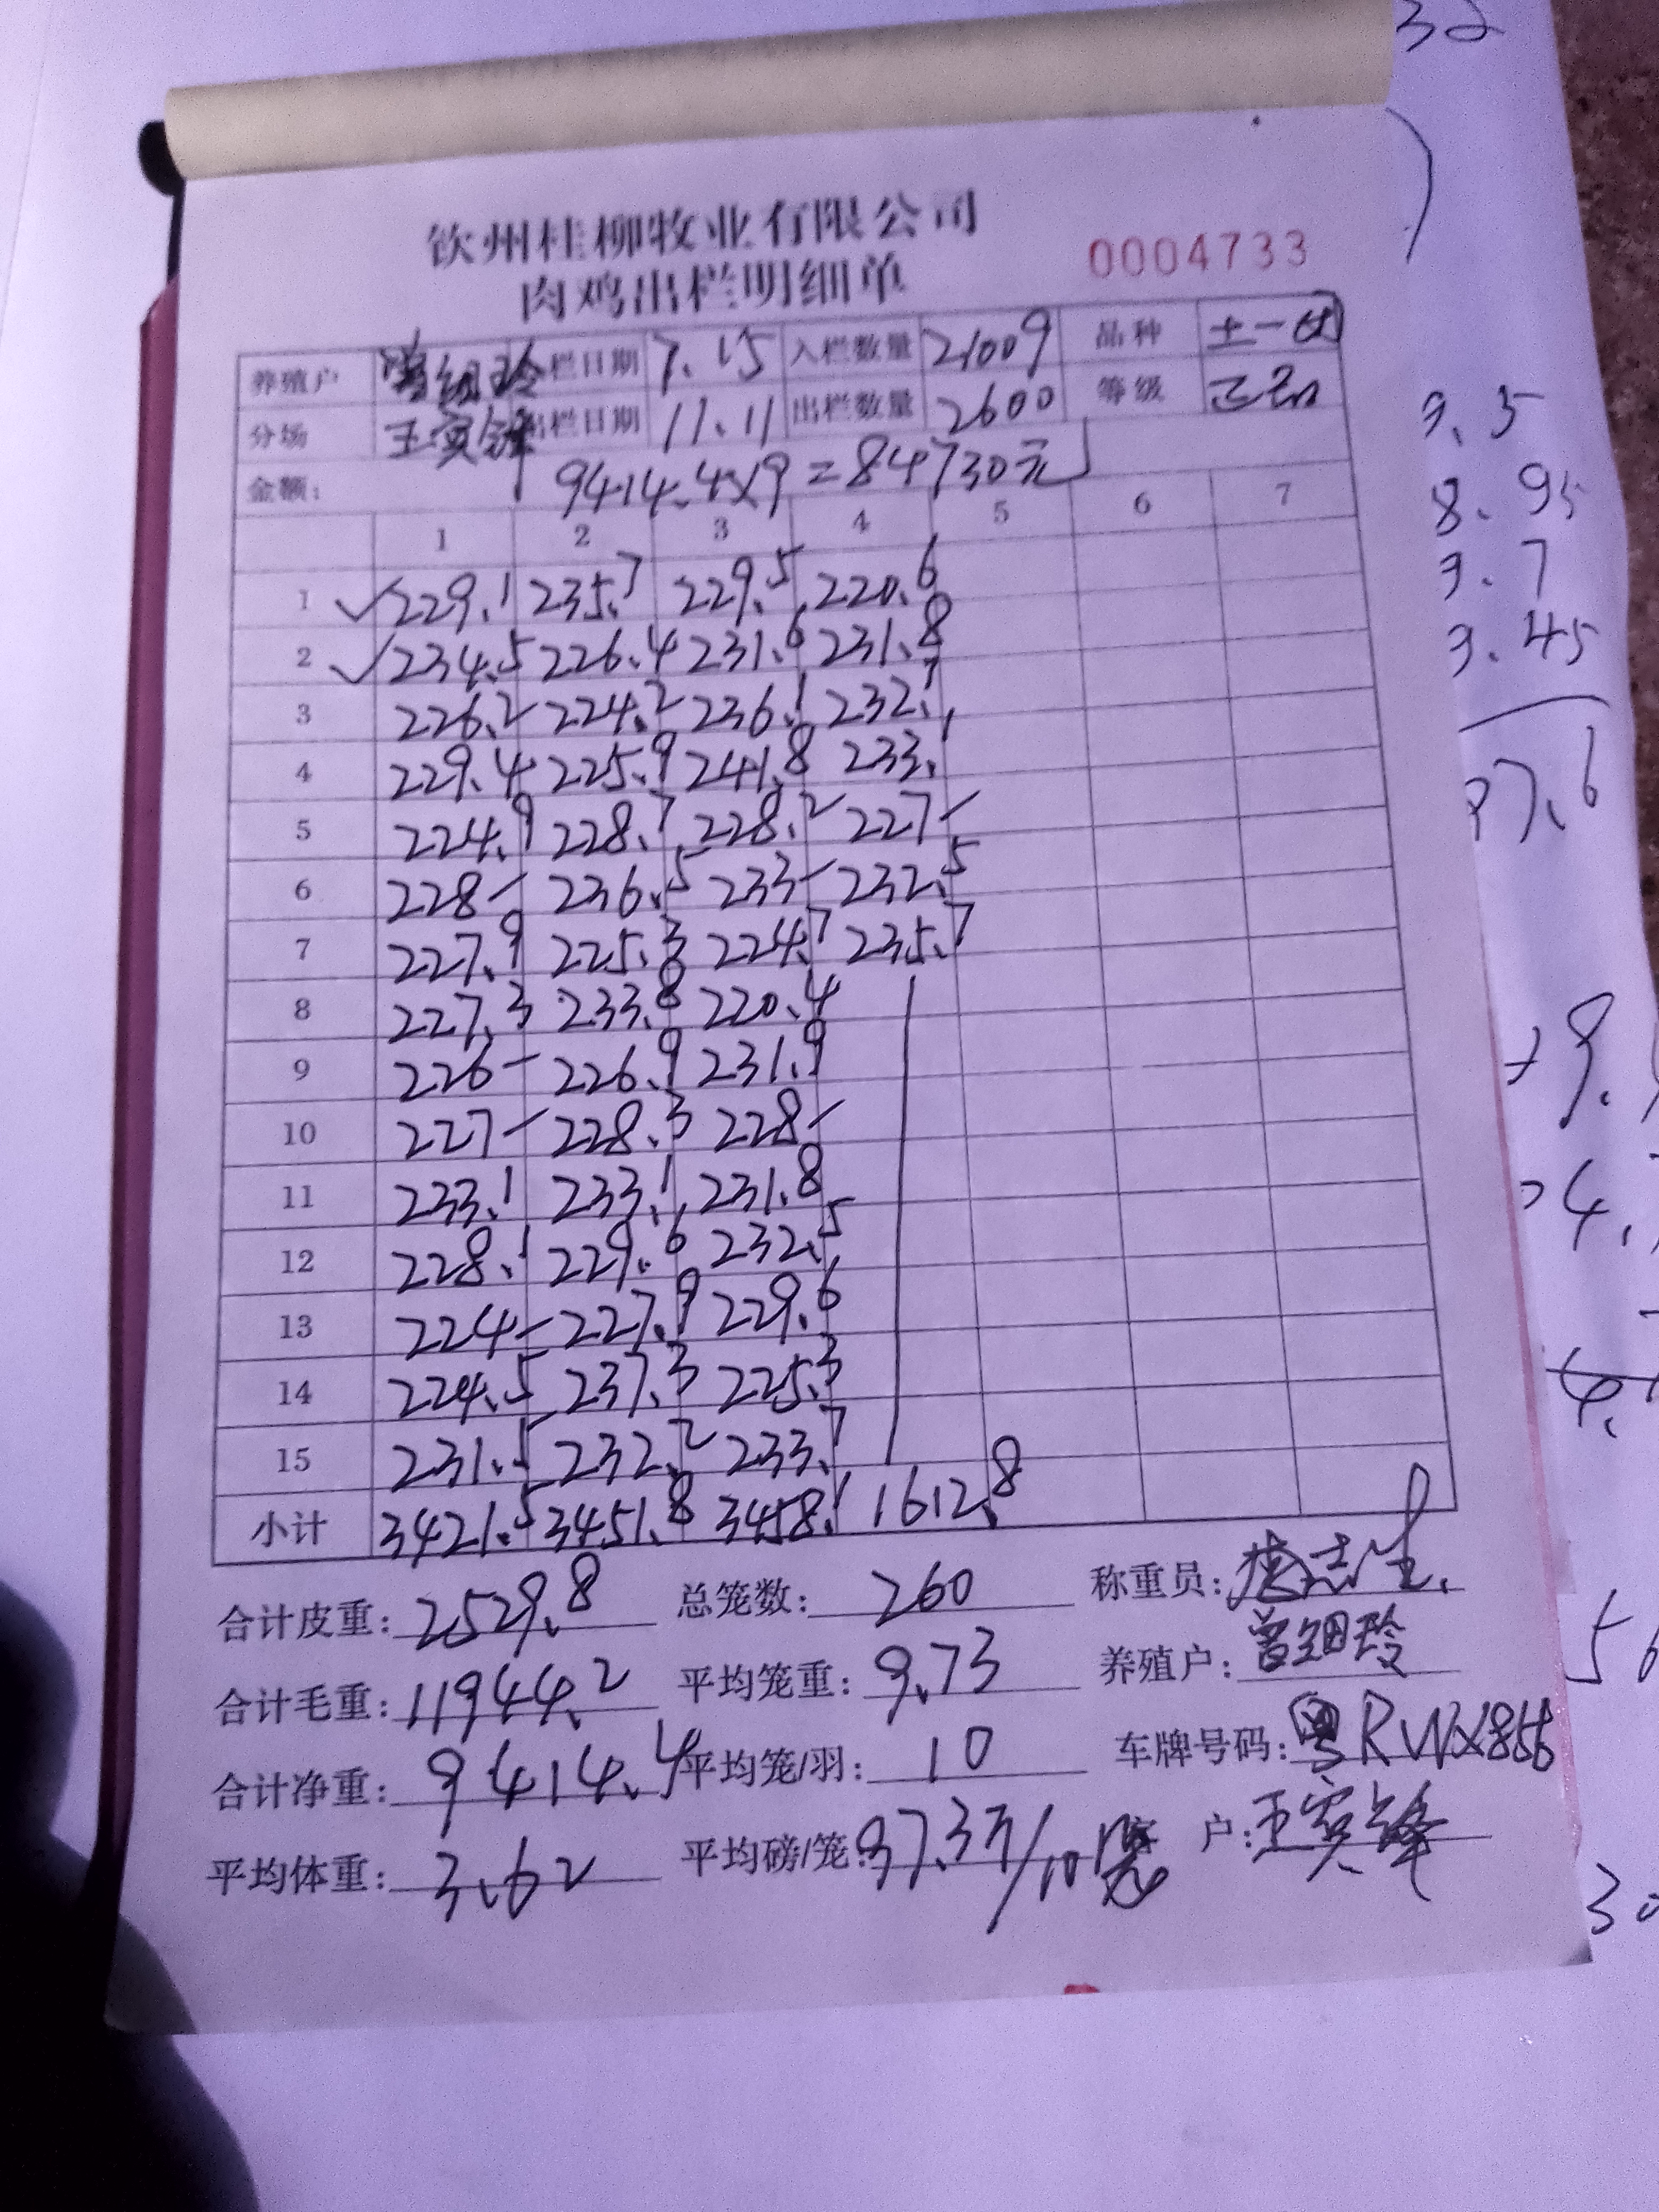 32
钦州桂柳牧业有限公司
肉鸡出栏明细单 0004733
养殖户 曾细玲 栏日期 7.15 入栏数量 21009 品种 土一
分场 王宾锋 出栏日期 11.11 出栏数量 2600 等级 正品
金额: 9414.4×9=84730元
1 2 3 4 5 6 7
1 ✓229.1 235.7 229.5 220.6
2 ✓234.5 226.4 231.6 231.8
3 226.2 224.2 236.1 232.1
4 229.4 225.9 241.8 233.1
5 224.9 228.7 228.2 227-
6 228- 236.5 233- 232.5
7 227.9 225.3 224.7 235.7
8 227.3 233.8 220.4
9 226- 226.9 231.9
10 227- 228.3 228-
11 233.1 233.1 231.8
12 228.1 229.6 232.5
13 224- 227.9 229.6
14 224.5 237.3 225.3
15 231.5 232.2 233.7
小计 3421.5 3451.8 3458.1 1612.8
合计皮重: 2529.8 总笼数: 260 称重员:
合计毛重: 11944.2 平均笼重: 9.73 养殖户: 曾细玲
合计净重: 9414.4 平均笼/羽: 10 车牌号码: 粤RWX856
平均体重: 3.62 平均磅/笼: 97.3斤/10笼 户: 王宾锋
9.5
8.95
9.7
9.45
97.6
56
30